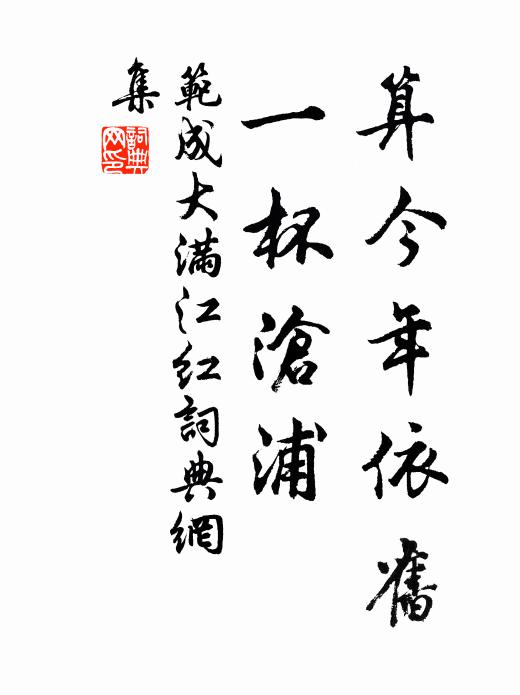 算今年依舊
一杯滄浦
範成大滿江紅詞典網
集
詞典網印